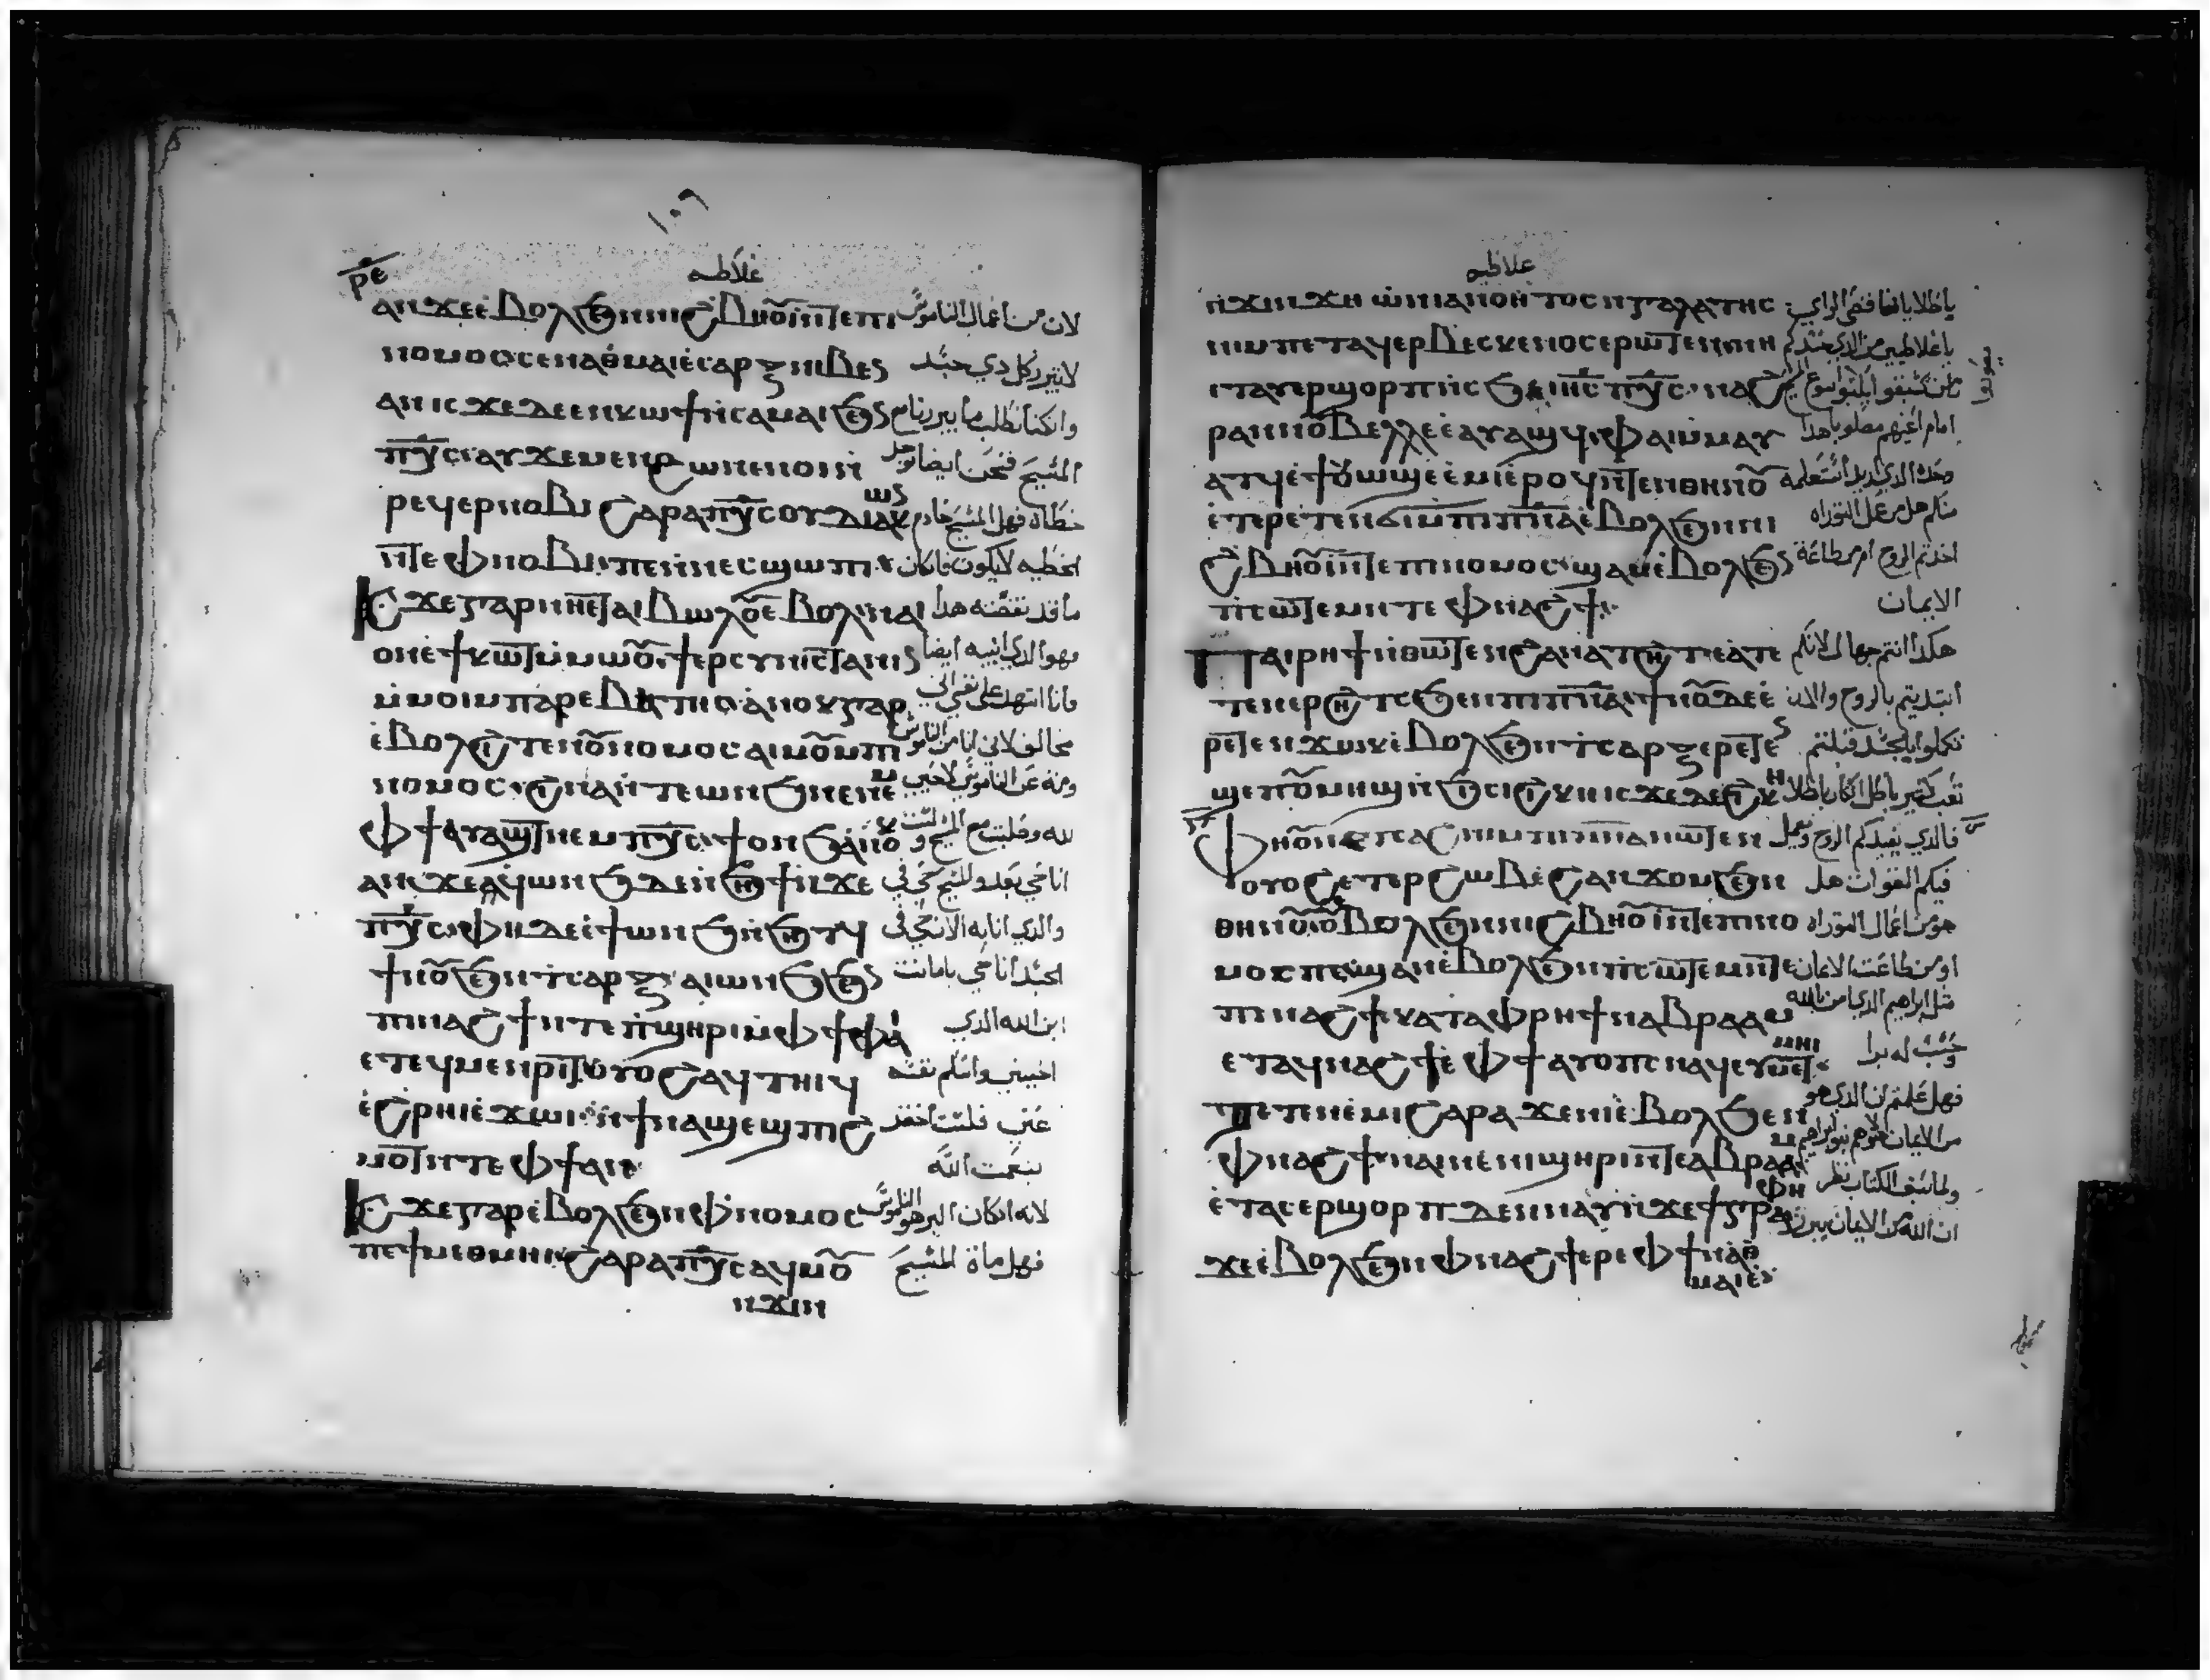 ١٠٩
ⲣⲉ
غلاطيه
ⲁⲛ ϫⲉ ⲉ̀ⲃⲟⲗϧⲉⲛ ⲛⲓϩⲃⲏⲟⲩⲓ̀ ⲛ̅ⲧⲉ ⲡⲓ لان من اعمال الناموس
ⲛⲟⲙⲟⲥ ⲥⲉⲛⲁⲑⲙⲁⲓⲉ̀ ⲥⲁⲣⲝ ⲛⲓⲃⲉⲛ لا يتبرر كل دي جسد
ⲁⲛ ⲓⲥϫⲉ ⲇⲉ ⲉⲛⲕⲱϯ ⲛ̀ⲥⲁ ⲙⲁⲓ ϧⲉⲛ وان كنا نطلب ما يبررنا مع
ⲡⲭ̅ⲥ ⲁⲩϫⲉⲙⲉⲛ ϩⲱⲛ ⲉⲛⲟⲓ ⲛ̀ المسيح فنحن ايضا نوجد
ⲣⲉϥⲉⲣⲛⲟⲃⲓ ϩⲁⲣⲁ ⲡⲭ̅ⲥ ⲟⲩⲇⲓⲁⲕⲱⲛ خطاه فهل المسيح خادم
ⲛ̅ⲧⲉ ⲫⲛⲟⲃⲓ ⲡⲉ ⲛ̀ⲛⲉⲥϣⲱⲡⲓ الخطيه لا يكون فان كان
ⲓⲥϫⲉ ⲅⲁⲣ ⲛⲏ ⲉ̅ⲧⲁⲓⲃⲱⲗⲟⲩ ⲉⲃⲟⲗ ⲛⲁⲓ ما قد نقضته هدا
ⲟⲛ ⲉ̀ϯⲕⲱ̅ⲧ ⲙ̀ⲙⲱⲟⲩ ϯⲉⲣⲥⲩⲛⲓⲥ̅ⲧⲁⲛⲓⲛ وهو الدي ابنيه ايضا
ⲙ̀ⲙⲟⲓ ⲙ̀ⲡⲁⲣⲉⲃⲁⲧⲏⲥ ⲁ̀ⲛⲟⲕ ⲅⲁⲣ فانا اشهد على نفسي اني
ⲉ̀ⲃⲟⲗϩⲓⲧⲉⲛ ⲟⲩⲛⲟⲙⲟⲥ ⲁⲓⲙⲟⲩ ⲙ̀ⲡⲓ مخالف لاني انا من الناموس
ⲛⲟⲙⲟⲥ ϩⲓⲛⲁ ⲛ̀ⲧⲉⲱⲛϧ ⲛⲉⲙ ومته عن الناموس لاحيي
ⲫϯ ⲁⲩⲁϣ̅ⲧ ⲛⲉⲙ ⲡⲭ̅ⲥ ϯⲟⲛϧ ⲁⲛⲟⲕ لله وصلبت مع المسيح ولست
ⲁⲛ ϫⲉ ⲁϥⲱⲛϧ ⲇⲉ ⲛ̀ϧⲏⲧ ⲛ̀ϫⲉ انا حي بعد والمسيح حي في
ⲡⲭ̅ⲥ ⲫⲏ ⲇⲉ ⲉ̀ϯⲱⲛϧ ⲛ̀ϧⲏⲧϥ والدي انا به الان حي في
ϯⲛⲟⲩ ϧⲉⲛ ⲧⲥⲁⲣⲝ ⲁⲓⲱⲛϧ ϧⲉⲛ الجسد انا حي بامانت
ⲡⲓⲛⲁϩϯ ⲛ̀ⲧⲉ ⲡ̀ϣⲏⲣⲓ ⲙ̀ⲫϯ ⲫⲁ ابن الله الدي
ⲉⲧⲉϥⲙⲉⲛⲣⲓ̅ⲧ ⲟⲩⲟϩ ⲁϥⲧⲏⲓϥ احبني واسلم نفسه
ⲉ̀ϩⲣⲏⲓ ⲉ̀ϫⲱⲓ ⲛ̀ϯⲛⲁϣⲉϣ ⲡⲓϩ عني فلست اجحد
ⲙⲟ̅ⲧ ⲛ̀ⲧⲉ ⲫϯ ⲁⲛ بنعمت الله
ⲓⲥϫⲉ ⲅⲁⲣ ⲉ̀ⲃⲟⲗϧⲉⲛ ⲫ̀ⲛⲟⲙⲟⲥ لانه ان كان البر هو الناموس
ⲡⲉ ϯⲙⲉⲑⲙⲏⲓ ϩⲁⲣⲁ ⲡⲭ̅ⲥ ⲁϥⲙⲟⲩ فهل مات المسيح
ⲛϫⲓⲛ
غلاطيه
ⲛ̀ϫⲓⲛϫⲏ ⲱ̀ ⲛⲓⲁⲛⲟⲏⲧⲟⲥ ⲛ̀ⲅⲁⲗⲁⲧⲏⲥ باطلا يا ناقصي الراي
ⲛⲓⲙ ⲡⲉⲧⲁϥⲉⲣⲃⲉⲥⲕⲉⲛⲓⲟⲥ ⲉⲣⲱ̅ⲧⲉⲛ ⲛⲏ يا غلاطيين من الدي حسدكم
ⲉ̀ⲧⲁⲩⲉⲣϣⲟⲣⲡ ⲛ̀ⲥϧⲉ ⲓⲏ̅ⲥ ⲡⲭ̅ⲥ ⲛⲁϩ
ⲣⲉⲛ ⲛⲟⲩⲃⲉⲗ ⲉ̀ⲁⲩⲁϣϥ ⲫⲁⲓ ⲙ̀ⲙⲁⲩ امام اعينهم مصلوبا هدا
ⲁⲧϥ ⲉ̀ϯⲟⲩⲱϣ ⲉ̀ⲉⲙⲓ ⲉ̀ⲣⲟϥ ⲛ̅ⲧⲉⲛ ⲑⲏⲛⲟⲩ وحده الدي اريد استعلمه
ⲉ̀ⲧⲉⲣⲉⲧⲉⲛϭⲓ ⲙ̀ⲡⲓⲡ̅ⲛ̅ⲁ ⲉ̀ⲃⲟⲗϧⲉⲛ ⲛⲓ منكم هل من عمل التوراه
ϩⲃⲏⲟⲩⲓ̀ ⲛ̅ⲧⲉ ⲡⲓⲛⲟⲙⲟⲥ ϣⲁⲛ ⲉ̀ⲃⲟⲗϧⲉⲛ اخدتم الروح ام من طاعة
ⲡⲥⲱ̅ⲧⲉⲙ ⲛ̀ⲧⲉ ⲫⲛⲁϩϯ الايمان
ⲡⲁⲓⲣⲏϯ ⲛ̀ⲑⲱ̅ⲧⲉⲛ ϩⲁⲛⲁⲧϩⲏⲧ ⲉ̀ⲁⲧⲉ هكدا انتم جهال لانكم
ⲧⲉⲛⲉⲣϩⲏⲧⲥ ϧⲉⲛ ⲡⲓⲡ̅ⲛ̅ⲁ ϯⲛⲟⲩ ⲇⲉ ⲉ̀ ابتديتم بالروح والان
ⲣⲉ̅ⲧⲉⲛϫⲱⲕ ⲉ̀ⲃⲟⲗϧⲉⲛ ⲧⲥⲁⲣⲝ ⲉⲣⲉ̅ⲧⲉⲛ تكملوا بالجسد قبلتم
ϣⲉⲡ ⲟⲩⲙⲏϣ ⲛ̀ϧⲓⲥⲓ ϩⲓⲕⲏ ⲓⲥϫⲉ ⲇⲉ ϩⲓⲕⲏ تعب كتير باطل ان كان باطلا
ⲫⲏ ⲟⲩⲛ ⲉⲧⲥⲁϩⲛⲓ ⲙ̀ⲡⲓⲡ̅ⲛ̅ⲁ ⲛⲱ̅ⲧⲉⲛ فالدي يفيدكم الروح ويعمل
ⲟⲩⲟϩ ⲉⲧⲉⲣϩⲱⲃ ⲉ̀ϩⲁⲛϫⲟⲙ ϧⲉⲛ فيكم القوات هل
ⲑⲏⲛⲟⲩ ⲉ̀ⲃⲟⲗϧⲉⲛ ⲛⲓϩⲃⲏⲟⲩⲓ̀ ⲛ̅ⲧⲉ ⲡⲓⲛⲟ هو من اعمال التوراه
ⲙⲟⲥ ⲡⲉ ϣⲁⲛ ⲉ̀ⲃⲟⲗϧⲉⲛ ⲡ̀ⲥⲱ̅ⲧⲉⲙ ⲛ̅ⲧⲉ او من طاعت الايمان
ⲡⲓⲛⲁϩϯ ⲕⲁⲧⲁ ⲫⲣⲏϯ ⲛ̀ⲁⲃⲣⲁⲁⲙ مثل ابراهيم الدي امن بالله
ⲉⲧⲁϥⲛⲁϩϯ ⲉ̀ⲫϯ ⲁⲩⲟⲡⲥ ⲛⲁϥ ⲉⲩⲙⲉ̅ⲑⲙⲏⲓ وحسب له برا
ⲧⲉⲧⲉⲛⲉ̀ⲙⲓ ϩⲁⲣⲁ ϫⲉ ⲛⲓⲉ̀ⲃⲟⲗϧⲉⲛ فهل علمتم ان الدي هو
ⲫⲛⲁϩϯ ⲛⲁⲓ ⲛⲉ ⲛⲓϣⲏⲣⲓ ⲛ̅ⲧⲉ ⲁⲃⲣⲁⲁⲙ من الايمان هولاهم بنو ابراهيم
ⲉ̀ⲧⲁⲥⲉⲣϣⲟⲣⲡ ⲇⲉ ⲛ̀ⲛⲁⲩ ⲛ̀ϫⲉ ϯⲅⲣⲁⲫⲏ ولما سبق الكتاب نظر
ϫⲉ ⲉ̀ⲃⲟⲗϧⲉⲛ ⲫⲛⲁϩϯ ⲉⲣⲉ ⲫϯ ⲛⲁⲑⲙⲁⲓⲉ̀ ان الله من الايمان يبرر